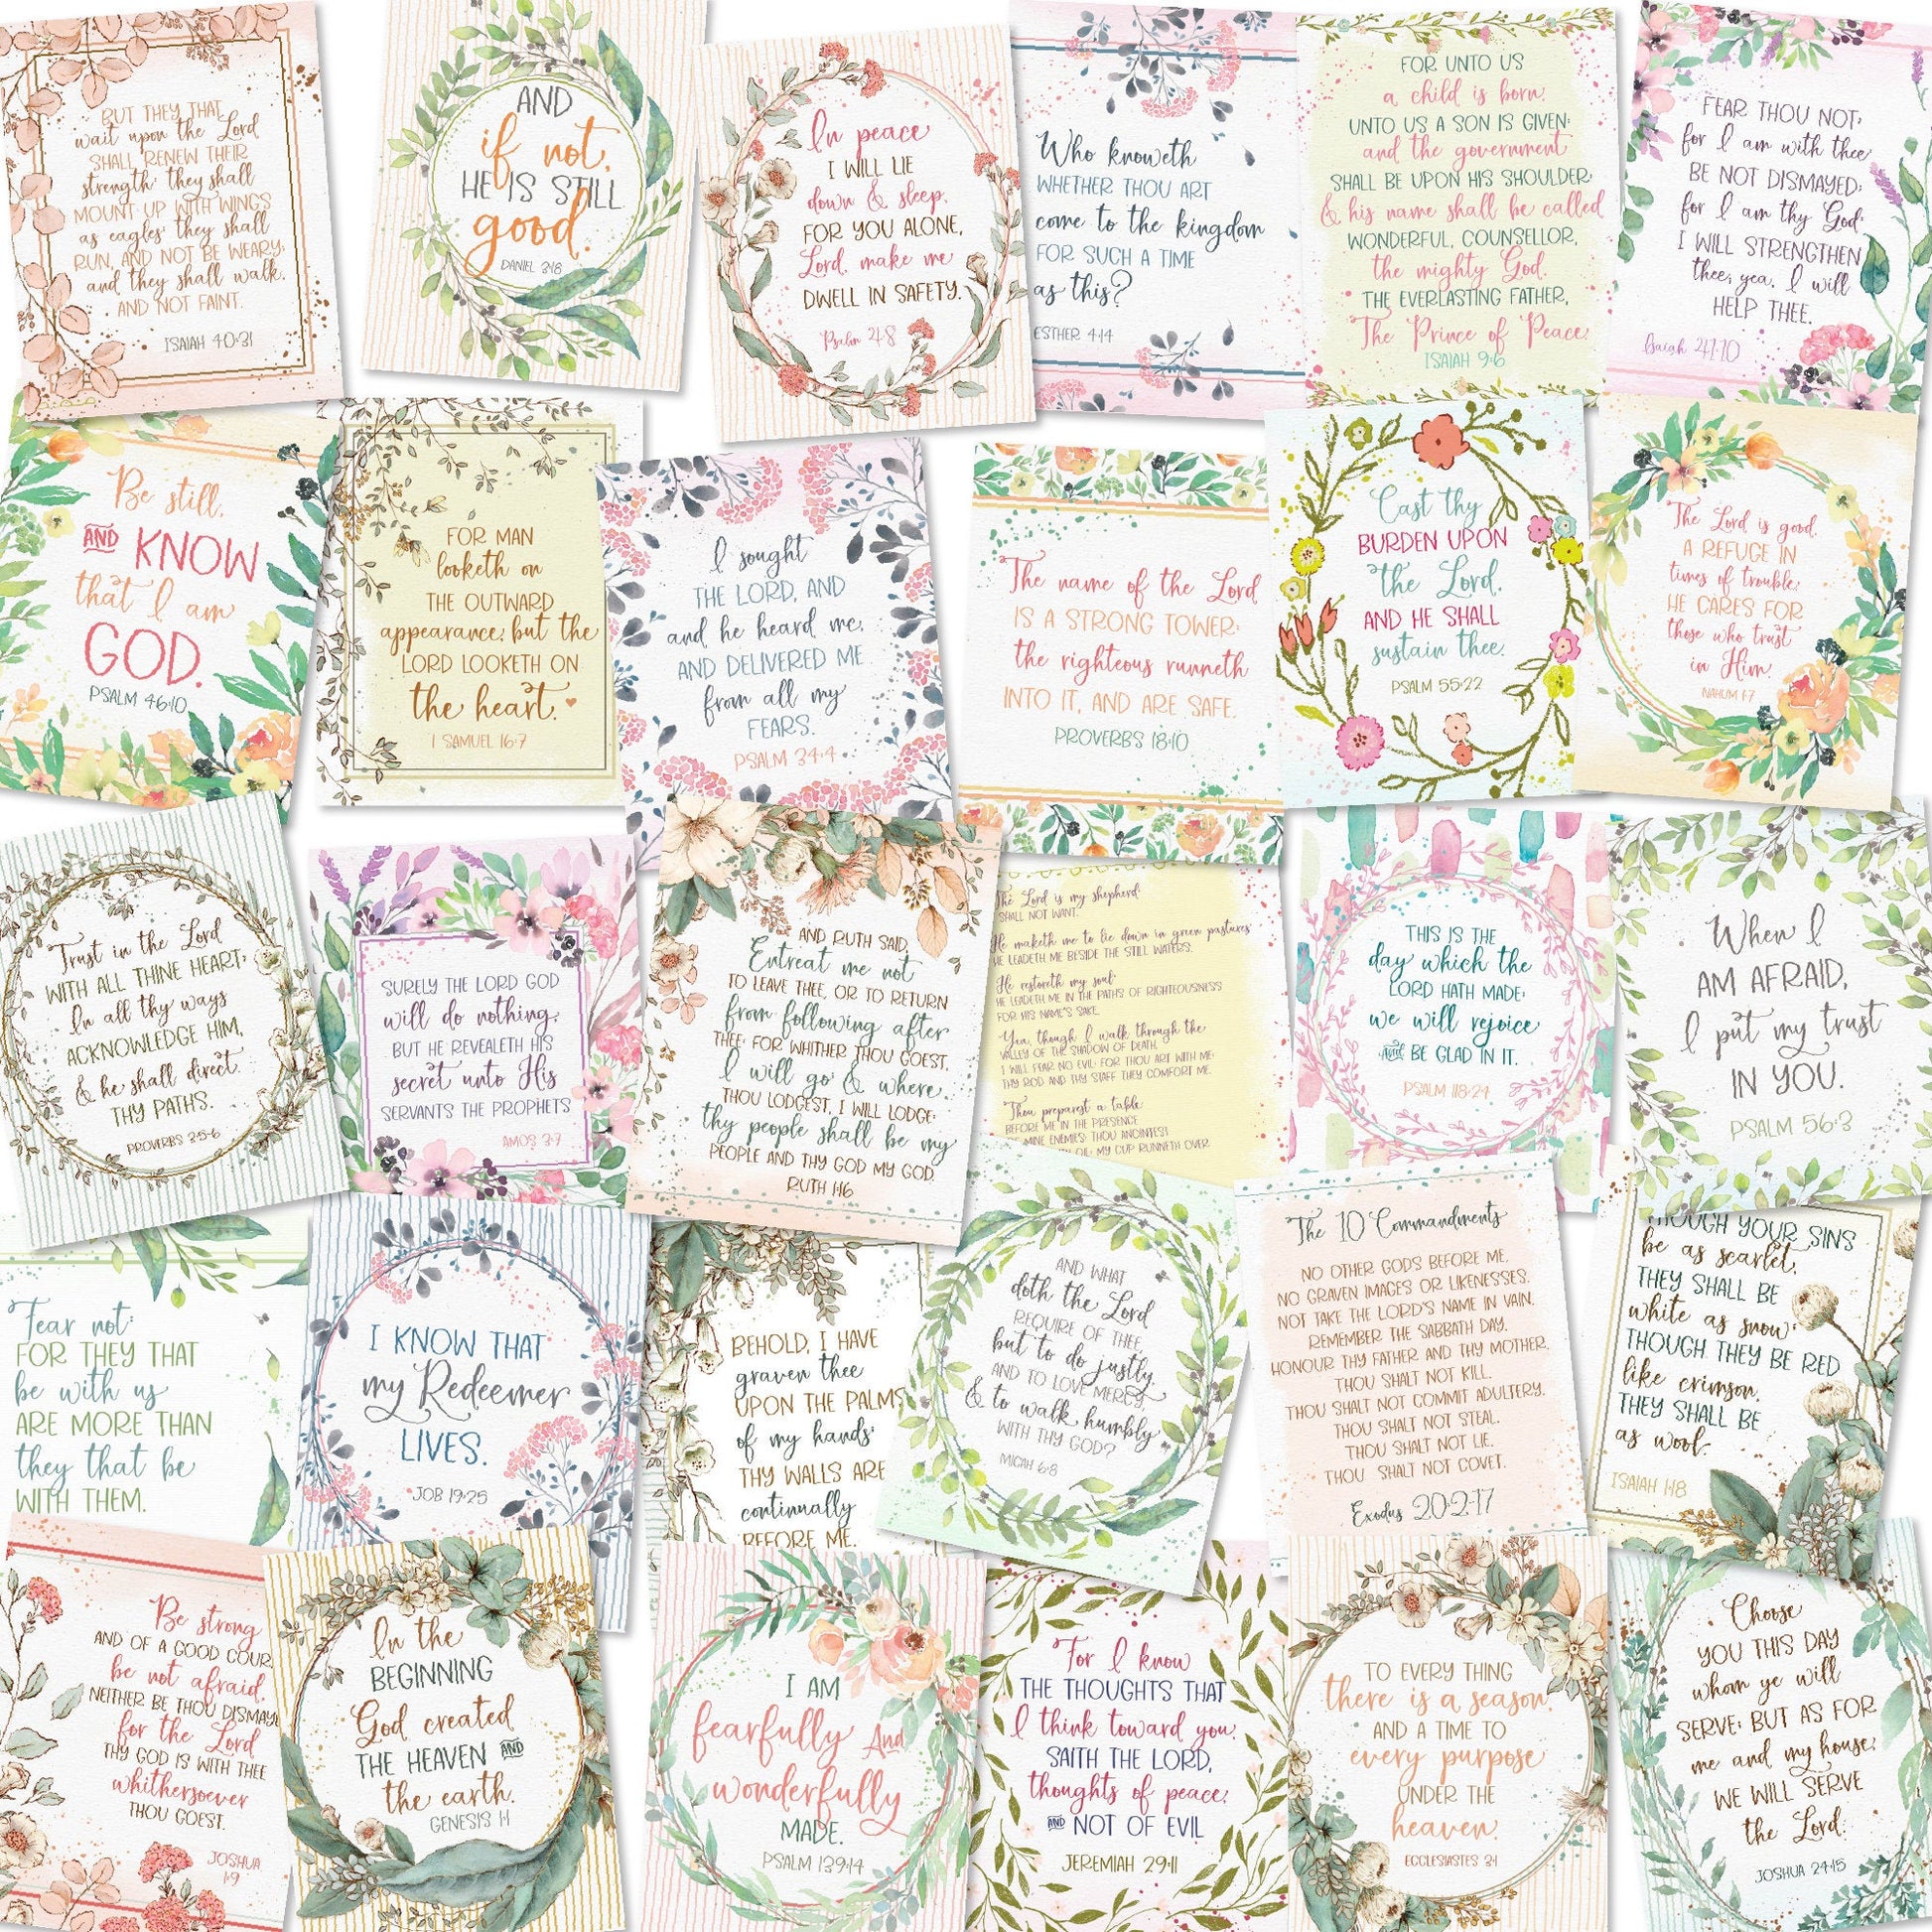 BUT THEY THAT
wait upon the Lord
SHALL RENEW THEIR
strength; they shall
MOUNT UP WITH WINGS
as eagles; they shall
RUN, AND NOT BE WEARY;
and they shall walk,
AND NOT FAINT.
ISAIAH 40:31
AND
if not,
HE IS STILL
good.
DANIEL 3:18
In peace
I WILL LIE
down & sleep,
FOR YOU ALONE,
Lord, make me
DWELL IN SAFETY.
Psalm 4:8
Who knoweth
WHETHER THOU ART
come to the kingdom
FOR SUCH A TIME
as this?
ESTHER 4:14
FOR UNTO US
a child is born,
UNTO US A SON IS GIVEN:
and the government
SHALL BE UPON HIS SHOULDER:
& his name shall be called
WONDERFUL, COUNSELLOR,
the mighty God,
THE EVERLASTING FATHER,
The Prince of Peace.
ISAIAH 9:6
FEAR THOU NOT;
for I am with thee:
BE NOT DISMAYED;
for I am thy God:
I WILL STRENGTHEN
thee; yea, I will
HELP THEE.
Isaiah 41:10
Be still,
AND KNOW
that I am
GOD.
PSALM 46:10
FOR MAN
looketh on
THE OUTWARD
appearance, but the
LORD LOOKETH ON
the heart.
1 SAMUEL 16:7
I sought
THE LORD, AND
and he heard me,
AND DELIVERED ME
from all my
FEARS.
PSALM 34:4
The name of the Lord
IS A STRONG TOWER:
the righteous runneth
INTO IT, AND ARE SAFE.
PROVERBS 18:10
Cast thy
BURDEN UPON
the Lord,
AND HE SHALL
sustain thee.
PSALM 55:22
The Lord is good,
A REFUGE IN
times of trouble;
HE CARES FOR
those who trust
in Him.
NAHUM 1:7
Trust in the Lord
WITH ALL THINE HEART;
In all thy ways
ACKNOWLEDGE HIM,
& he shall direct
THY PATHS.
PROVERBS 3:5-6
SURELY THE LORD GOD
will do nothing,
BUT HE REVEALETH HIS
secret unto His
SERVANTS THE PROPHETS
AMOS 3:7
AND RUTH SAID,
Entreat me not
TO LEAVE THEE, OR TO RETURN
from following after
THEE: FOR WHITHER THOU GOEST,
I will go; & where
THOU LODGEST, I WILL LODGE:
thy people shall be my
PEOPLE AND THY GOD MY GOD.
RUTH 1:16
The Lord is my shepherd;
SHALL NOT WANT.
He maketh me to lie down in green pastures:
HE LEADETH ME BESIDE THE STILL WATERS.
He restoreth my soul:
HE LEADETH ME IN THE PATHS OF RIGHTEOUSNESS
FOR HIS NAME'S SAKE.
Yea, though I walk through the
VALLEY OF THE SHADOW OF DEATH,
I WILL FEAR NO EVIL: FOR THOU ART WITH ME;
THY ROD AND THY STAFF THEY COMFORT ME.
Thou preparest a table
BEFORE ME IN THE PRESENCE
MINE ENEMIES: THOU ANOINTEST
OIL; MY CUP RUNNETH OVER.
THIS IS THE
day which the
LORD HATH MADE;
we will rejoice
AND BE GLAD IN IT.
PSALM 118:24
When I
AM AFRAID,
I put my trust
IN YOU.
PSALM 56:3
Fear not:
FOR THEY THAT
be with us
ARE MORE THAN
they that be
WITH THEM.
I KNOW THAT
my Redeemer
LIVES.
JOB 19:25
BEHOLD, I HAVE
graven thee
UPON THE PALMS
of my hands;
THY WALLS ARE
continually
BEFORE ME.
AND WHAT
doth the Lord
REQUIRE OF THEE,
but to do justly,
AND TO LOVE MERCY,
& to walk humbly
WITH THY GOD?
MICAH 6:8
The 10 Commandments
NO OTHER GODS BEFORE ME.
NO GRAVEN IMAGES OR LIKENESSES.
NOT TAKE THE LORD'S NAME IN VAIN.
REMEMBER THE SABBATH DAY.
HONOUR THY FATHER AND THY MOTHER.
THOU SHALT NOT KILL.
THOU SHALT NOT COMMIT ADULTERY.
THOU SHALT NOT STEAL.
THOU SHALT NOT LIE.
THOU SHALT NOT COVET.
Exodus 20:2-17
THOUGH YOUR SINS
be as scarlet,
THEY SHALL BE
white as snow;
THOUGH THEY BE RED
like crimson,
THEY SHALL BE
as wool.
ISAIAH 1:18
Be strong
AND OF A GOOD COUR
be not afraid,
NEITHER BE THOU DISMAY
for the Lord
THY GOD IS WITH THEE
whithersoever
THOU GOEST.
JOSHUA
1:9
In the
BEGINNING
God created
THE HEAVEN AND
the earth.
GENESIS 1:1
I AM
fearfully And
wonderfully
MADE.
PSALM 139:14
For I know
THE THOUGHTS THAT
I think toward you,
SAITH THE LORD,
thoughts of peace,
AND NOT OF EVIL
JEREMIAH 29:11
TO EVERY THING
there is a season,
AND A TIME TO
every purpose
UNDER THE
heaven:
ECCLESIASTES 3:1
Choose
YOU THIS DAY
whom ye will
SERVE; BUT AS FOR
me and my house,
WE WILL SERVE
the Lord.
JOSHUA 24:15